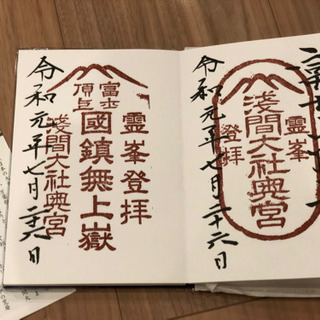 靈峯
淺間大社奥宮
登拝
令和元年七月二十六日
靈峯登拝
富士
頂上
國鎮無上嶽
淺間大社奥宮
令和元年七月二十六日